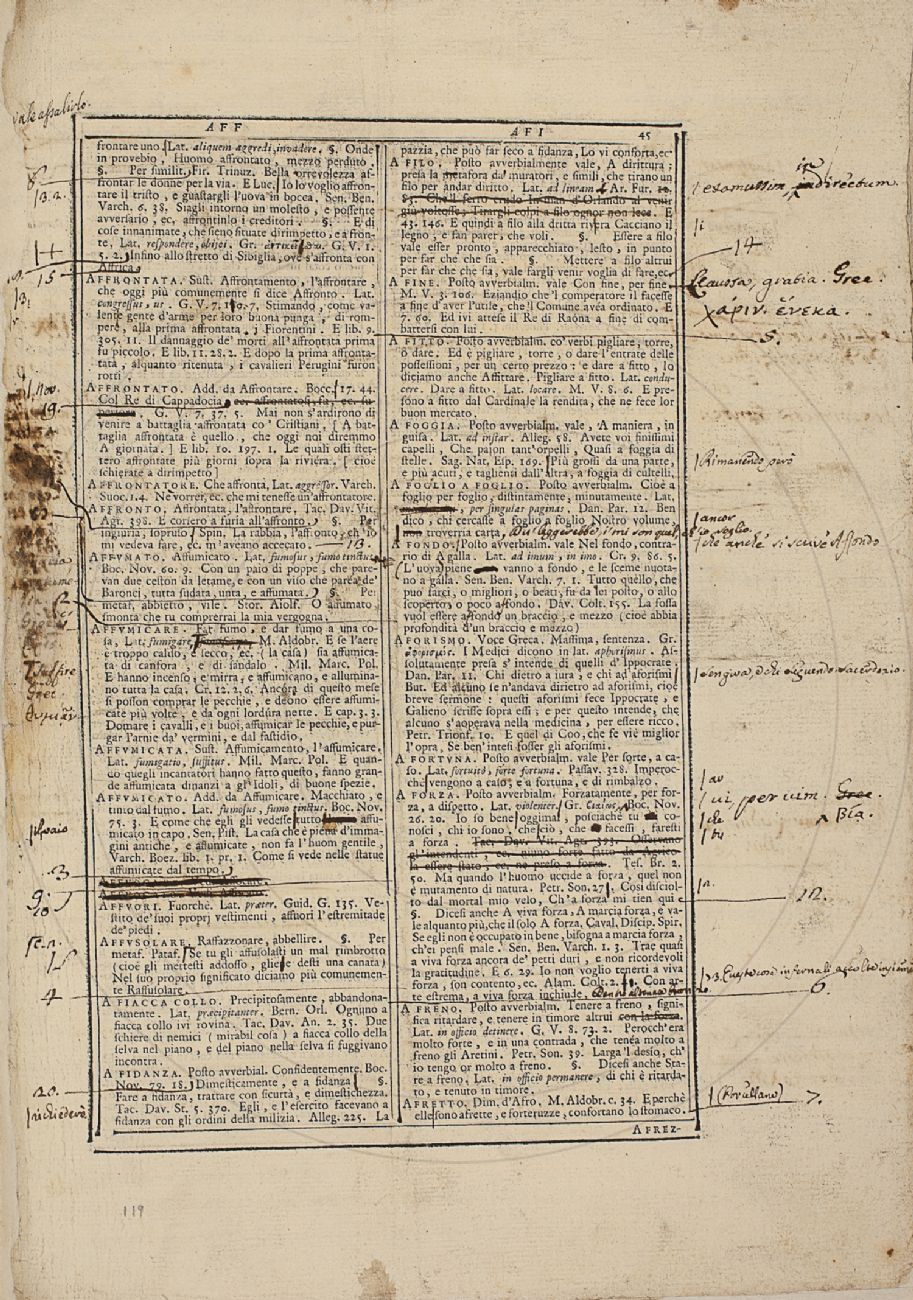 vale assalirlo.
AFF
AFI
45
frontare uno. Lat. aliquem aggredi, invadere. §. Onde
in provebio, Huomo affrontato, mezzo perduto.
§. Per similit. Fir. Trinuz. Bella orrevolezza af-
frontar le donne per la via. E Luc. Io lo voglio affron-
tare il tristo, e guastargli l'uova in bocca. Sen. Ben.
Varch. 6. 38. Siagli intorno un molesto, e possente
avversario, ec. affrontinlo i creditori. §. E di
cose innanimate, che sieno situate dirimpetto, e a fron-
te, Lat. respondere, obijci. Gr. G. V. 1.
5. 2. Infino allo stretto di Sibiglia, ove s'affronta con
Affrica.
AFFRONTATA. Sust. Affrontamento, l'affrontare,
che oggi più comunemente si dice Affronto. Lat.
congressus, us. G. V. 7. 19. 7. Stimando, come va-
lente gente d'arme per loro buona punga, di rom-
pere, alla prima affrontata, i Fiorentini. E lib. 9.
305. 11. Il dannaggio de' morti all'affrontata prima
fu piccolo. E lib. 11. 28. 2. E dopo la prima affronta-
tata, alquanto ritenuta, i cavalieri Perugini furon
rotti.
AFFRONTATO. Add. da Affrontare. Bocc. 17. 44.
Col Re di Cappadocia, ec. affrontatosi, fu, ec. su-
perato. G. V. 7. 37. 5. Mai non s'ardirono di
venire a battaglia affrontata co' Cristiani. [A bat-
taglia affrontata è quello, che oggi noi diremmo
A giornata.] E lib. 10. 197. 1. Le quali osti stet-
tero affrontate più giorni sopra la riviera. [cioè
schierate a dirimpetto]
AFFRONTATORE. Che affronta, Lat. aggressor. Varch.
Suoc. 1. 4. Ne vorrei, ec. che mi tenesse un'affrontatore.
AFFRONTO. Affrontata, l'affrontare, Tac. Dav. Vit.
Agr. 398. E coriero a furia all'affronto. §. Per
ingiuria, sopruso. Spin. La rabbia, l'affronto, ch'io
mi vedeva fare, ec. m'aveano accecato. 18.
AFFVMATO. Affumicato. Lat. fumosus, fumo tinctus.
Boc. Nov. 60. 9. Con un paio di poppe, che pare-
van due ceston da letame, e con un viso che parea de'
Baronci, tutta sudata, unta, e affumata. §. Per
metaf. abbietto, vile. Stor. Aiolf. O affumato,
smonta che tu comprerrai la mia vergogna.
AFFVMICARE. Far fumo, e dar fumo a una co-
sa, Lat. fumigare, M. Aldobr. E se l'aere
è troppo caldo, e secco, ec. (la casa) sia affumica-
ta di canfora, e di sandalo. Mil. Marc. Pol.
E hanno incenso, e mirra, e affumicano, e allumina-
no tutta la casa. Cr. 12. 2. 6. Ancora di questo mese
si posson comprar le pecchie, e deono essere affumi-
cate più volte, e da ogni lordura nette. E cap. 3. 3.
Domare i cavalli, e i buoi, affumicar le pecchie, e pur-
gar l'arnie da' vermini, e dal fastidio.
AFFVMICATA. Sust. Affumicamento, l'affumicare.
Lat. fumigatio, suffitus. Mil. Marc. Pol. E quan-
do quegli incantatori hanno fatto questo, fanno gran-
de affumicata dinanzi a gl'Idoli, di buone spezie.
AFFVMICATO. Add. da Affumicare. Macchiato, e
tinto dal fumo. Lat. fumosus, fumo tinctus, Boc. Nov.
75. 3. E come che egli gli vedesse tutto affu-
micato in capo, Sen. Pist. La casa che è piena d'imma-
gini antiche, e affumicate, non fa l'huom gentile,
Varch. Boez. lib. 1. pr. 1. Come si vede nelle statue
affumicate dal tempo.
AFFVORI. Fuorchè. Lat. præter. Guid. G. 135. Ve-
stito de' suoi proprj vestimenti, affuori l'estremitade
de' piedi.
AFFVSOLARE. Raffazzonare, abbellire. §. Per
metaf. Pataf. Se tu gli affusolasti un mal rimbrotto
(cioè gli mettesti addosso, gliele desti una canata)
Nel suo proprio significato diciamo più comunemen-
te Raffusolare.
A FIACCA COLLO. Precipitosamente, abbandona-
tamente. Lat. præcipitanter. Bern. Orl. Ognuno a
fiacca collo ivi rovina. Tac. Dav. An. 2. 35. Due
schiere di nemici (mirabil cosa) a fiacca collo della
selva nel piano, e del piano nella selva si fuggivano
incontra.
A FIDANZA. Posto avverbial. Confidentemente. Boc.
Nov. 79. 18. Dimesticamente, e a fidanza. §.
Fare a fidanza, trattare con sicurtà, e dimestichezza.
Tac. Dav. St. 5. 370. Egli, e l'esercito facevano a
fidanza con gli ordini della milizia. Alleg. 225. La
pazzia, che può far seco a fidanza, Lo vi conforta, ec.
A FILO. Posto avverbialmente vale, A dirittura:
presa la metafora da' muratori, e simili, che tirano un
filo per andar diritto. Lat. ad lineam. Ar. Fur. 12.
83. Che'l ferro crudo In man d'Orlando al venir
giù voltosse; Tirargli colpi a filo ognor non lece. E
43. 146. E quindi a filo alla dritta rivera Cacciano il
legno; e fan parer, che voli. §. Essere a filo
vale esser pronto, apparecchiato, lesto, in punto
per far che che sia. §. Mettere a filo altrui
per far che che sia, vale fargli venir voglia di fare, ec.
A FINE. Posto avverbialm. vale Con fine, per fine.
M. V. 3. 106. Eziandio che'l comperatore il facesse
a fine d'aver l'utile, che'l Comune avea ordinato. E
7. 60. Ed ivi attese il Re di Raona a fine di com-
battersi con lui.
A FITTO. Posto avverbialm. co' verbi pigliare, torre,
ò dare. Ed è pigliare, torre, o dare l'entrate delle
possessioni, per un certo prezzo: e dare a fitto, lo
diciamo anche Affittare. Pigliare a fitto. Lat. condu-
cere. Dare a fitto. Lat. locare. M. V. 8. 6. E pre-
sono a fitto dal Cardinale la rendita, che ne fece lor
buon mercato.
A FOGGIA. Posto avverbialm. vale, A maniera, in
guisa. Lat. ad instar. Alleg. 58. Avete voi finissimi
capelli, Che pajon tant'orpelli, Quasi a foggia di
stelle. Sag. Nat. Esp. 169. Più grossi da una parte,
e più acuti, e taglienti dall'altra, a foggia di cultelli.
A FOGLIO A FOGLIO. Posto avverbialm. Cioè a
foglio per foglio, distintamente, minutamente. Lat.
per singulas paginas. Dan. Par. 12. Ben
dico, chi cercasse a foglio a foglio Nostro volume,
troverria carta, Du' leggerebbe, i' mi son quel
A FONDO. Posto avverbialm. vale Nel fondo, contra-
rio di A galla. Lat. ad imum, in imo. Cr. 9. 86. 5.
(L'uova) piene vanno a fondo, e le sceme nuota-
no a galla. Sen. Ben. Varch. 7. 1. Tutto quello, che
può farci, o migliori, o beati, fu da lei posto, o allo
scoperto, o poco affondo. Dav. Colt. 155. La fossa
vuol essere affondo un braccio, e mezzo (cioè abbia
profondità d'un braccio e mezzo)
AFORISMO. Voce Greca. Massima, sentenza. Gr.
I Medici dicono in lat. aphorismus. As-
solutamente presa s'intende di quelli d'Ippocrate,
Dan. Par. 11. Chi dietro a iura, e chi ad aforismi
But. Ed alcuno se n'andava dirietro ad aforismi, cioè
breve sermone: questi aforismi fece Ippocrate, e
Galieno scrisse sopra essi; e per questo intende, che
alcuno s'aoperava nella medicina, per essere ricco.
Petr. Trionf. 10. E quel di Coo, che fe vie miglior
l'opra, Se ben'intesi fosser gli aforismi.
A FORTUNA. Posto avverbialm. vale Per sorte, a ca-
so. Lat. fortuitò, forte fortuna. Passav. 328. Imperoc-
chè vengono a caso, e a fortuna, e di rimbalzo.
A FORZA. Posto avverbialm. Forzatamente, per for-
za, a dispetto. Lat. violenter. Gr. Boc. Nov.
26. 20. Io so bene oggimai, posciachè tu co-
nosci, chi io sono, che ciò, che facessi, faresti
a forza. Tac. Dav. Vit. Agr. 393. Osservano
gl'intendenti, ec. niuno forte fatto da Agrico-
la essere stato, ec. ne preso a forza. Tes. Br. 2.
50. Ma quando l'huomo uccide a forza, quel non
è mutamento di natura. Petr. Son. 27. Così disciol-
to dal mortal mio velo, Ch'a forza mi tien qui
§. Dicesi anche A viva forza, A marcia forza, e va-
le alquanto più, che il solo A forza, Caval. Discip. Spir.
Se egli non è occupato in bene, bisogna a marcia forza,
ch'ei pensi male. Sen. Ben. Varch. 1. 3. Trae quasi
a viva forza ancora de' petti duri, e non ricordevoli
la gratitudine. E 6. 29. Io non voglio tenerti a viva
forza, son contento, ec. Alam. Colt. 2. Con ar-
te estrema, a viva forza inchiude.
A FRENO. Posto avverbialm. Tenere a freno, signi-
fica ritardare, e tenere in timore altrui con la forza.
Lat. in officio detinere. G. V. 8. 73. 2. Perocch'era
molto forte, e in una contrada, che tenea molto a
freno gli Aretini. Petr. Son. 39. Larga 'l desio, ch'
io tengo or molto a freno. §. Dicesi anche Sta-
re a freno, Lat. in officio permanere, di chi è ritarda-
to, e tenuto in timore.
AFRETTO. Dim. d'Afro. M. Aldobr. c. 34. E perchè
elle sono afrette, e fortetuzze, confortano lo stomaco.
AFREZ-
8
13. 2.
14
15
19.
3
9.
10
4
20.
richiedere
examussim, in directum.
14
caussa, gratia. Grec.
χάριν. ἕνεκα.
5.
Rimanendo però
ancor
io voglio.
che anche si scrive Affondo
vi, per vim. Grec.
Βία.
12.
6.
7.
119